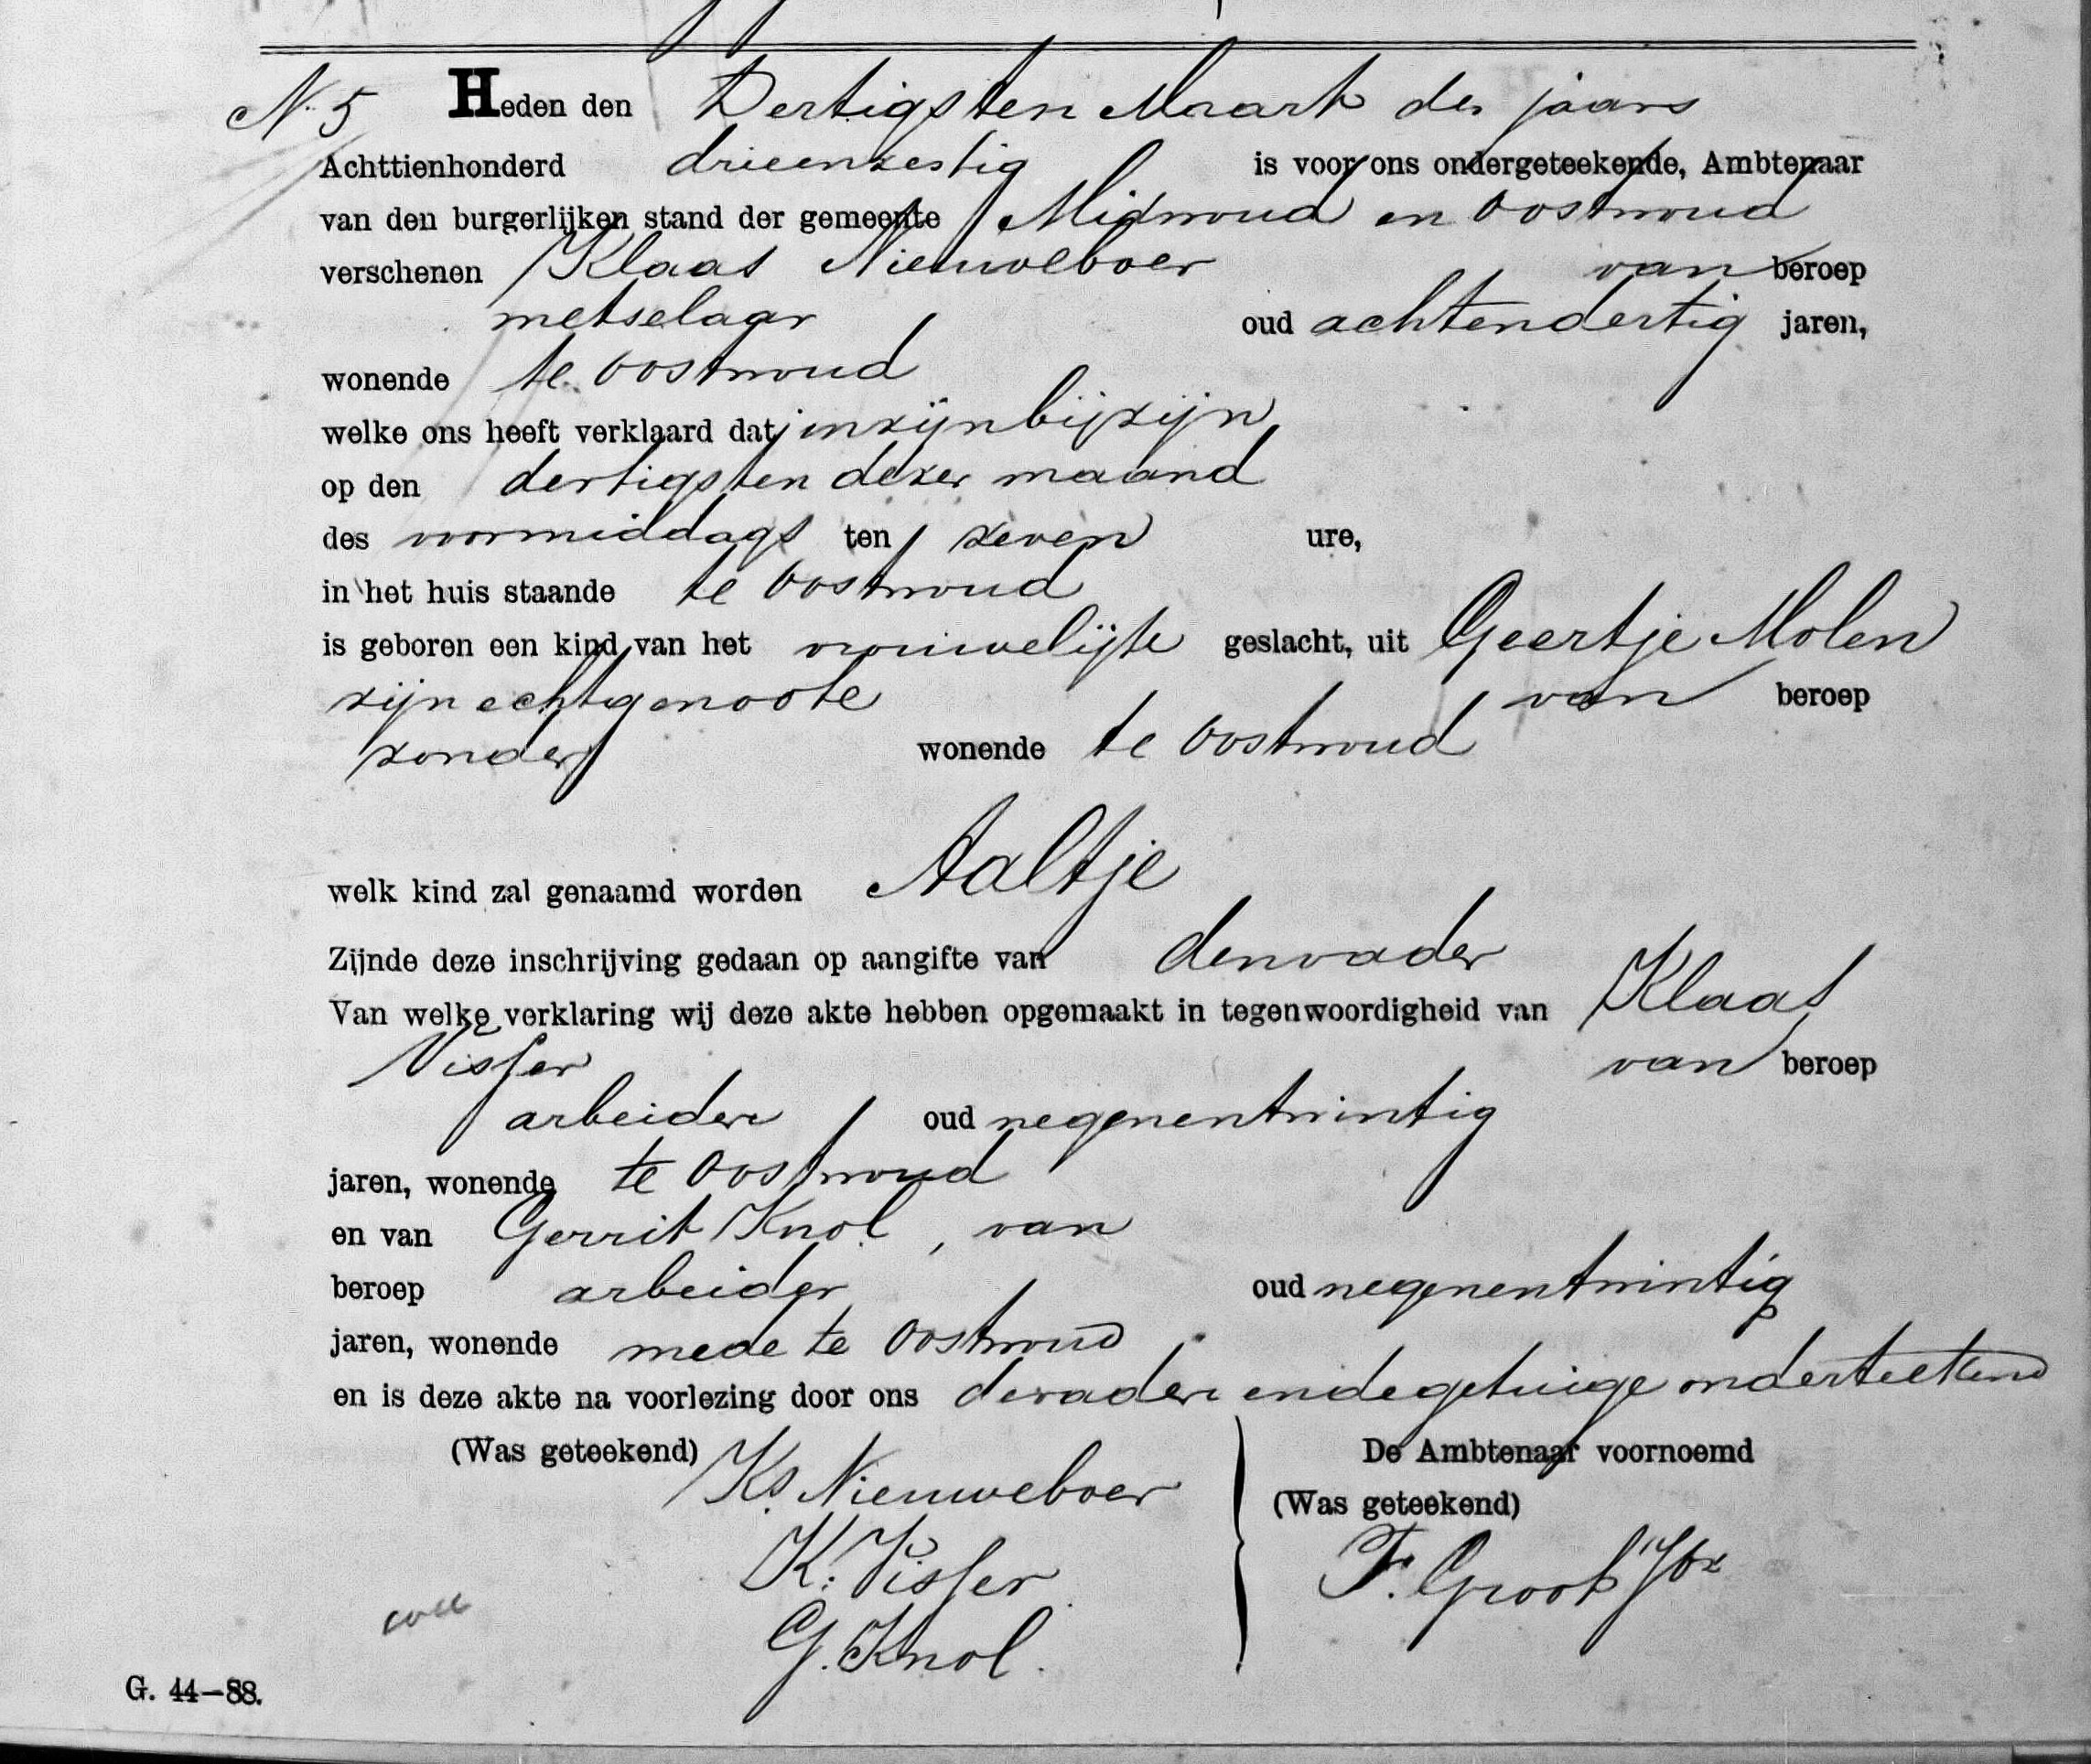 N. 5 Heden den Dertigsten Maart des jaars
Achttienhonderd drieenzestig is voor ons ondergeteekende, Ambtenaar
van den burgerlijken stand der gemeente Midwoud en Oostwoud
verschenen Klaas Nieuweboer van beroep
metselaar oud achtendertig jaren,
wonende te Oostwoud
welke ons heeft verklaard dat in zijn bijzijn
op den dertigsten dezer maand
des voormiddags ten zeven ure,
in het huis staande te Oostwoud
is geboren een kind van het vrouwelijke geslacht, uit Geertje Molen
zijn echtgenoote van beroep
zonder wonende te Oostwoud
welk kind zal genaamd worden Aaltje
Zijnde deze inschrijving gedaan op aangifte van den vader
Van welke verklaring wij deze akte hebben opgemaakt in tegenwoordigheid van Klaas
Visser van beroep
arbeider oud negenentwintig
jaren, wonende te Oostwoud
en van Gerrit Knol, van
beroep arbeider oud negenentwintig
jaren, wonende mede te Oostwoud
en is deze akte na voorlezing door ons de vader en de getuige onderteekend
(Was geteekend) De Ambtenaar voornoemd
Ks. Nieuweboer (Was geteekend)
K. Visser F. Groot
G. Knol.
G. 44—88.